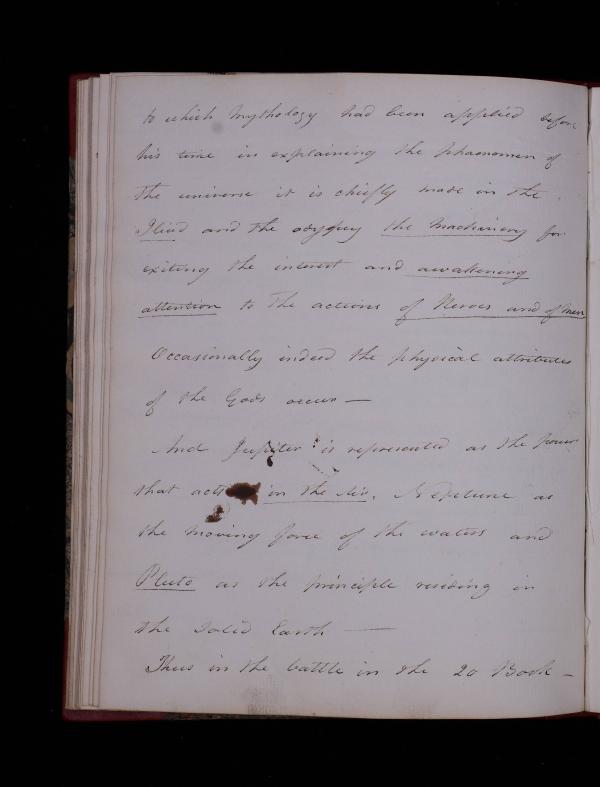 to which Mythology had been applied before
his time in explaining the phaenomen of
the universe it is chiefly made in the
Iliad and the odyssey the machinery for
exiting the interest and awakening
attention to the actions of Heroes and of Men
Occasionally indeed the physical attributes
of the Gods occur —
And Jupiter is represented as the power
that acts in the Air. Neptune as
the moving force of the waters and
Pluto as the principle residing in
the solid Earth —
Thus in the battle in the 20 Book —